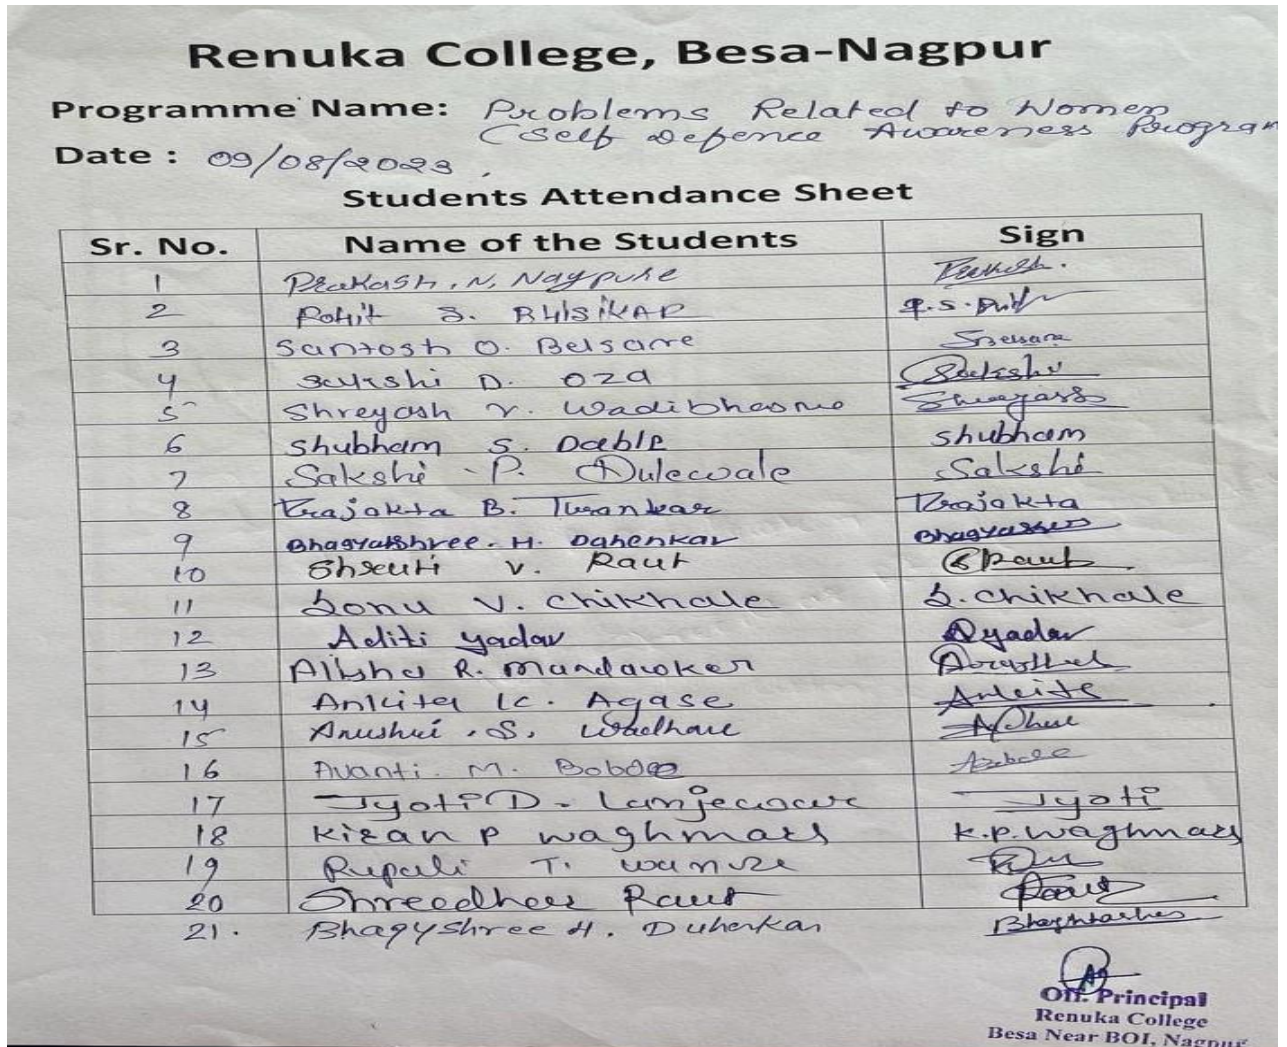 Renuka College, Besa-Nagpur
Programme Name: Problems Related to Women
(Self Defence Awareness Program
Date : 09/08/2023
Students Attendance Sheet
Sr. No. Name of the Students Sign
1 Prakash. N. Nagpure Prakash.
2 Rohit S. BHISIKAR R.S.
3 Santosh O. Belsare Sbelsare
4 Sakshi D. Oza Sakshi
5 Shreyash V. Wadibhasme
6 Shubham S. Dable Shubham
7 Sakshi P. Dulewale Sakshi
8 Prajakta B. Turankar Prajakta
9 Bhagyashree. H. Dahenkar
10 Shruti V. Raut SRaut
11 Sonu V. Chikhale S. Chikhale
12 Aditi Yadav Yadav
13 Alisha R. Mandawker
14 Ankita K. Agase Ankita
15 S. Wadhare
16 Avanti. M. Bobde
17 Jyoti D. Lanjewar Jyoti
18 Kiran P Waghmare K.P. Waghmare
19 Rupali T.
20 Raut Raut
21. Bhagyshree H. Duhenkar
Off. Principal
Renuka College
Besa Near BOI, Nagpur